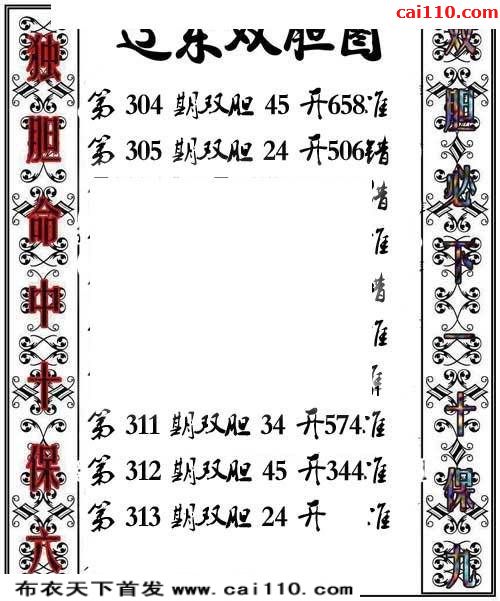 cai110.com
辽东双胆图
独胆命中十保六
第 304 期双胆 45 开658准
第 305 期双胆 24 开506错
错
准
错
准
准
第 311 期双胆 34 开574准
第 312 期双胆 45 开344准
第 313 期双胆 24 开 准
双胆必下一十保九
布衣天下首发 www.cai110.com